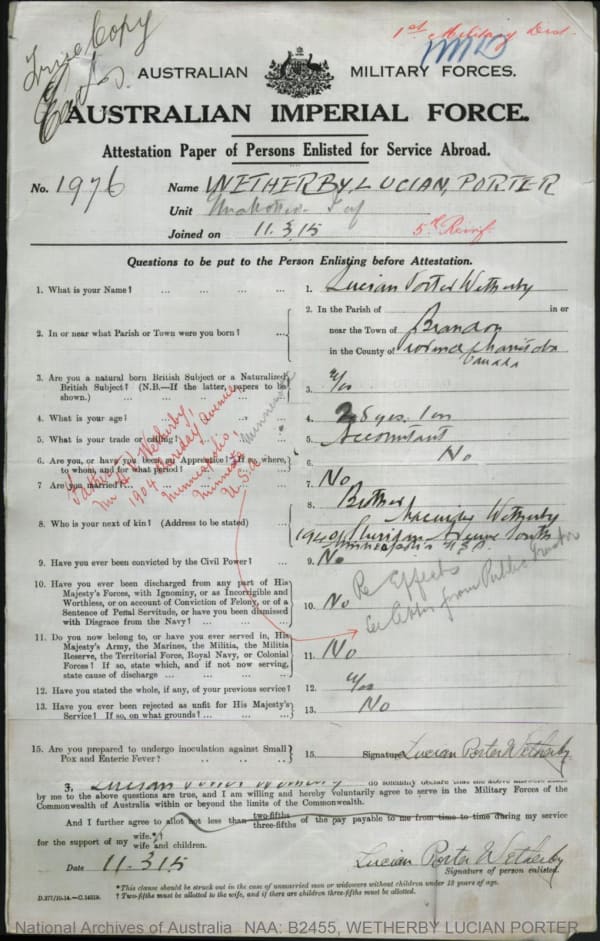 True Copy
1st Military Dist
AUSTRALIAN MILITARY FORCES.
AUSTRALIAN IMPERIAL FORCE.
Attestation Paper of Persons Enlisted for Service Abroad.
No. 1976 Name WETHERBY, LUCIAN, PORTER
Unit
Joined on 11.3.15 5th Reinf.
Questions to be put to the Person Enlisting before Attestation.
1. What is your Name? ... ... ... ... 1. Lucian Porter Wetherby
2. In or near what Parish or Town were you born? ... 2. In the Parish of in or
near the Town of Brandon
in the County of Manitoba
Canada
3. Are you a natural born British Subject or a Naturalized
British Subject? (N.B.—If the latter, papers to be
shown.) ... ... ... ... 3. Yes
4. What is your age? ... ... ... ... 4. 28 yrs. 1 m
5. What is your trade or calling? ... ... 5. Accountant
6. Are you, or have you been, an Apprentice? If so, where,
to whom, and for what period? 6. No
7. Are you married? ... ... 7. No
Father:
Mr Wetherby,
1904 Avenue
Minneapolis,
Minnesota
U.S.A.
8. Who is your next of kin? (Address to be stated) ... 8. Brother
Wetherby
Sheridan Avenue South
Minneapolis U.S.A.
9. Have you ever been convicted by the Civil Power? ... 9. No
Re Effects
from Public
10. Have you ever been discharged from any part of His
Majesty's Forces, with Ignominy, or as Incorrigible and
Worthless, or on account of Conviction of Felony, or of a
Sentence of Penal Servitude, or have you been dismissed
with Disgrace from the Navy? ... 10. No
11. Do you now belong to, or have you ever served in, His
Majesty's Army, the Marines, the Militia, the Militia
Reserve, the Territorial Force, Royal Navy, or Colonial
Forces? If so, state which, and if not now serving,
state cause of discharge ... ... ... 11. No
12. Have you stated the whole, if any, of your previous service? 12. Yes
13. Have you ever been rejected as unfit for His Majesty's
Service? If so, on what grounds? ... ... 13. No
15. Are you prepared to undergo inoculation against Small
Pox and Enteric Fever? ... ... ... 15. Signature Lucian Porter Wetherby
I, Lucian Porter Wetherby do solemnly declare that the above answers made
by me to the above questions are true, and I am willing and hereby voluntarily agree to serve in the Military Forces of the
Commonwealth of Australia within or beyond the limits of the Commonwealth.
And I further agree to allot not less than two-fifths
three-fifths of the pay payable to me from time to time during my service
for the support of my wife.*†
wife and children.
Date 11.3.15 Lucian Porter Wetherby
Signature of person enlisted.
*This clause should be struck out in the case of unmarried men or widowers without children under 18 years of age.
† Two-fifths must be allotted to the wife, and if there are children three-fifths must be allotted.
National Archives of Australia NAA: B2455, WETHERBY LUCIAN PORTER